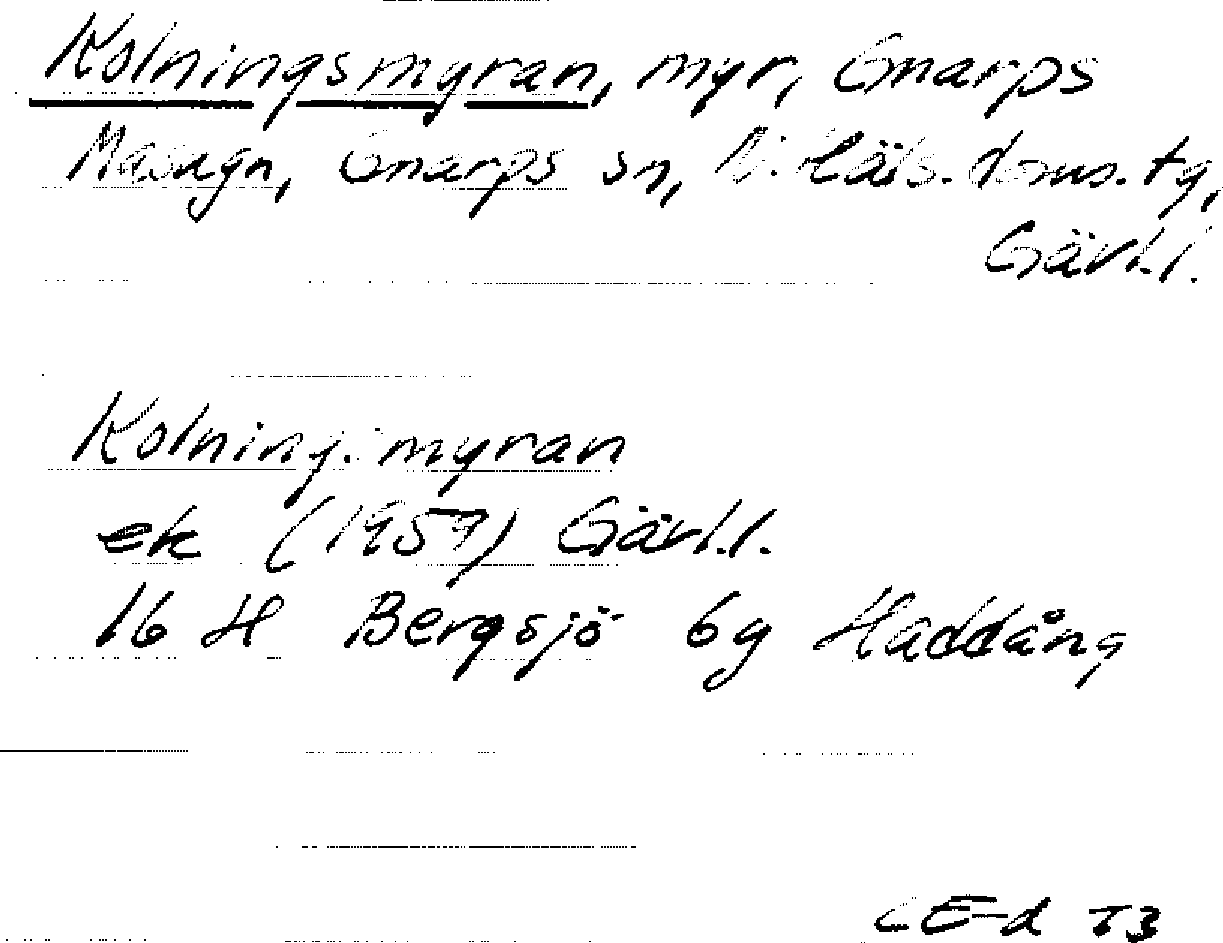 Kolningsmyran, myr, Gnarps
Masugn, Gnarps sn, N. Häls. doms. tg,
Gävl.l.
Kolningsmyran
ek (1957) Gävl.l.
16 H Bergsjö 6g Haddång
CE-d T3